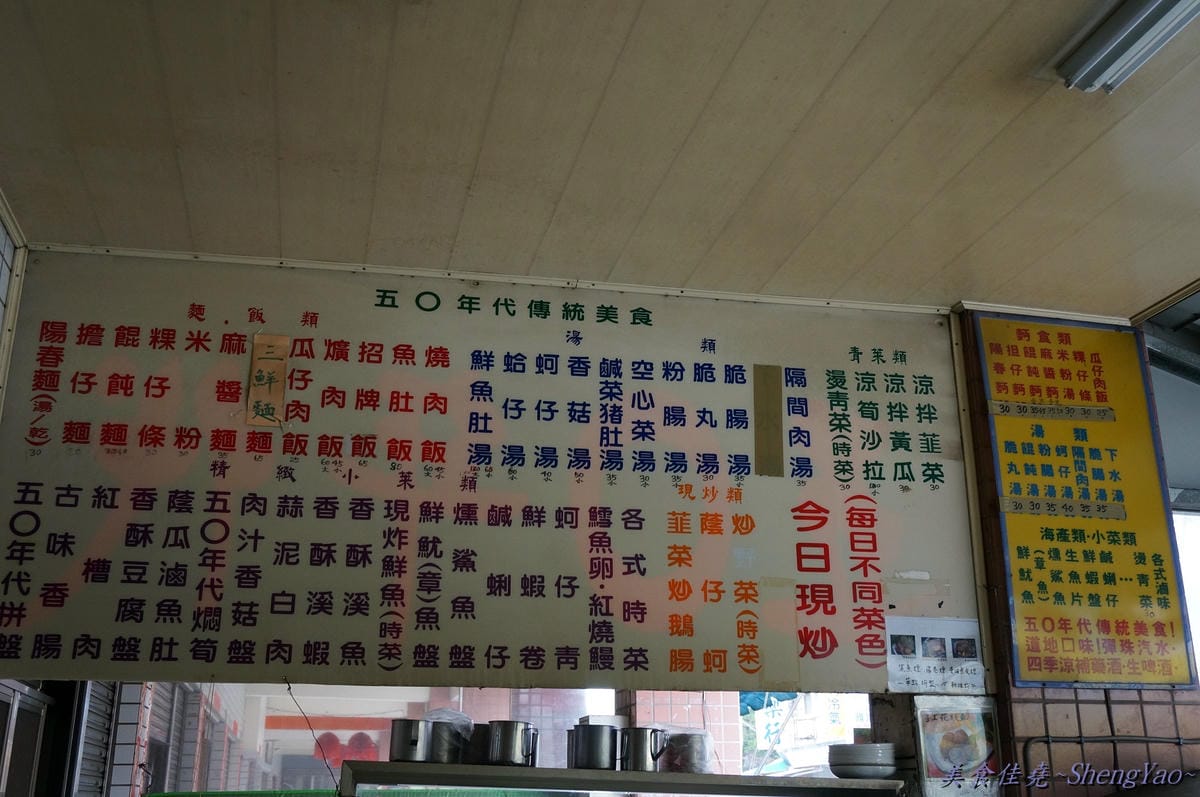 五〇年代傳統美食
麵.飯類
陽春麵(湯/乾)
擔仔麵
餛飩麵
粿仔條
米粉
麻醬麵
三鮮麵
瓜仔肉飯
爌肉飯
招牌飯
魚肚飯
燒肉飯
湯類
鮮魚肚湯
蛤仔湯
蚵仔湯
香菇湯
鹹菜猪肚湯
空心菜湯
粉腸湯
脆丸湯
脆腸湯
隔間肉湯
青菜類
燙青菜(時菜)
涼筍沙拉
涼拌黃瓜
涼拌韮菜
精緻小菜類
五〇年代拼盤
古味香腸
紅糟肉
香酥豆腐盤
蔭瓜滷魚肚
五〇年代燜筍
肉汁香菇盤
蒜泥白肉
香酥溪蝦
香酥溪魚
現炸鮮魚(時菜)
鮮魷(章)魚盤
燻鯊魚盤
鹹蜊仔
鮮蝦卷
蚵仔青
鱈魚卵·紅燒鰻
各式時菜
現炒類
韮菜炒鵝腸
蔭仔蚵
炒鮮菜(時菜)
今日現炒
(每日不同菜色)
麪食類
陽春麪
担仔麪
餛飩麪
麻醬麪
米粉湯
粿仔條
瓜仔肉飯
湯類
脆丸湯
餛飩湯
粉腸湯
蚵仔湯
隔間肉湯
脆腸湯
下水湯
海產類·小菜類
鮮魷(章魚)
燻鯊魚
生魚片
鮮蝦盤
鹹蜊仔
燙青菜
各式滷味
五〇年代傳統美食!
道地口味!彈珠汽水·
四季涼補藥酒·生啤酒·
美食佳堯~ShengYao~